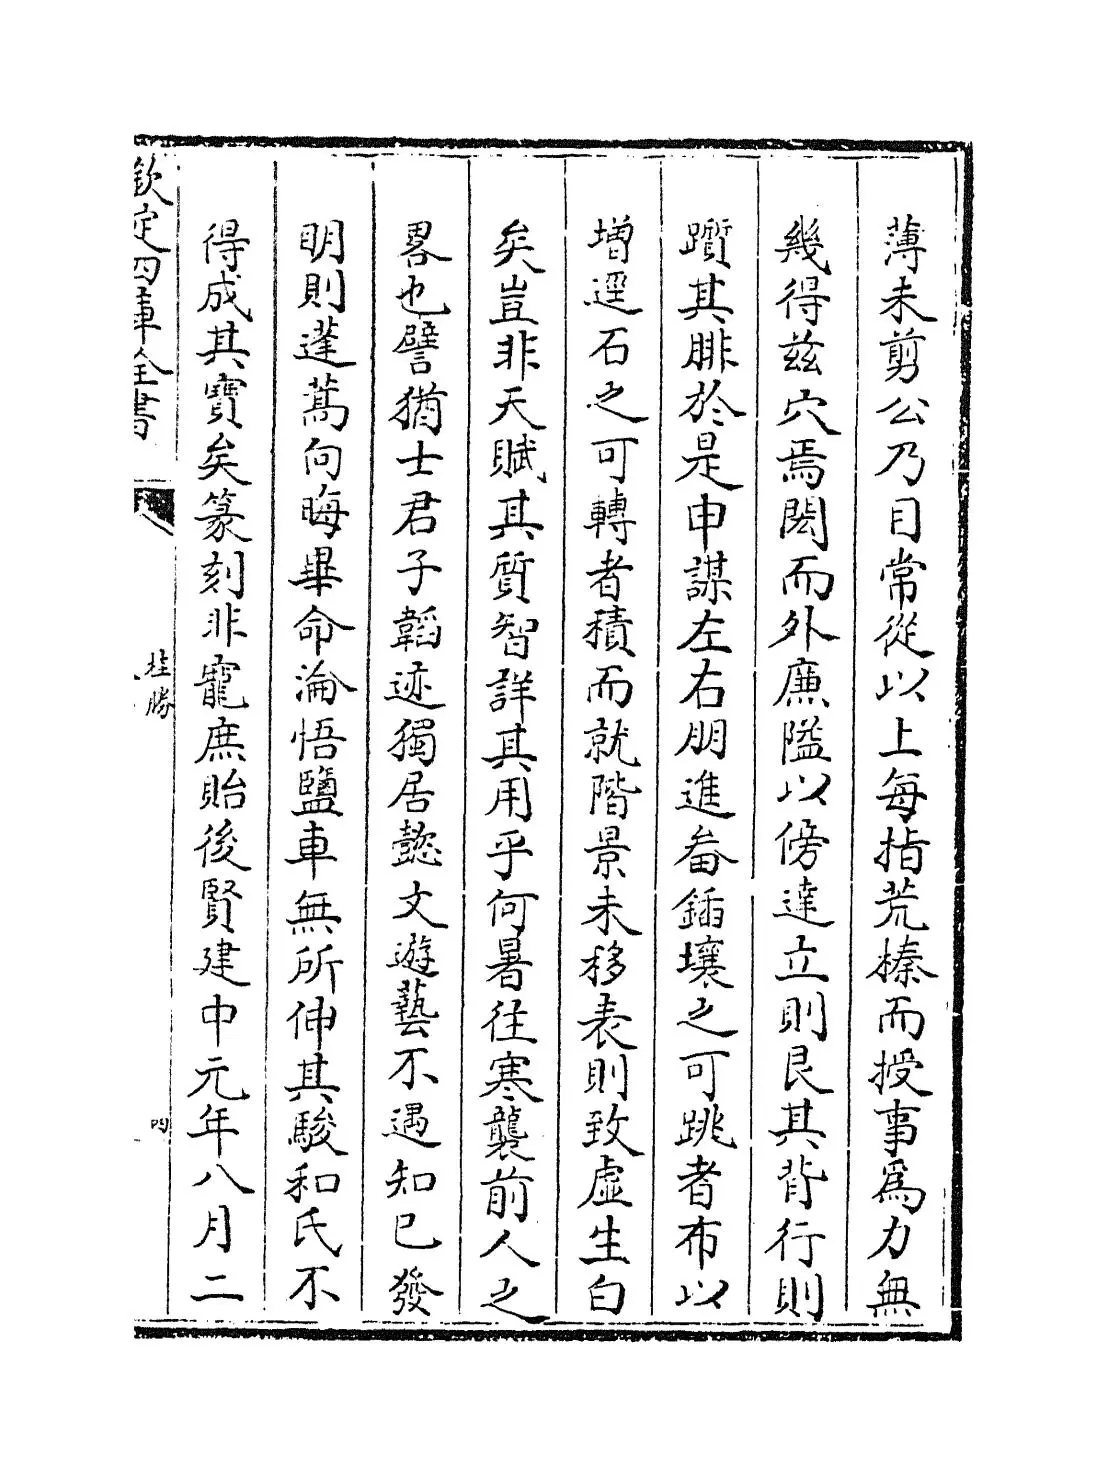 薄未剪公乃目常從以上每指荒榛而授事爲力無
幾得兹穴焉閎而外廉隘以傍達立則艮其背行則
躓其腓於是申謀左右朋進畚鍤壤之可跳者布以
增逕石之可轉者積而就階景未移表則致虛生白
矣豈非天賦其質智詳其用乎何暑往寒襲前人之
畧也譬猶士君子韜迹獨居懿文遊藝不遇知已發
明則蓬蒿向晦畢命淪悟鹽車無所伸其駿和氏不
得成其寶矣篆刻非寵庶貽後賢建中元年八月二
欽定四庫全書
桂勝
四